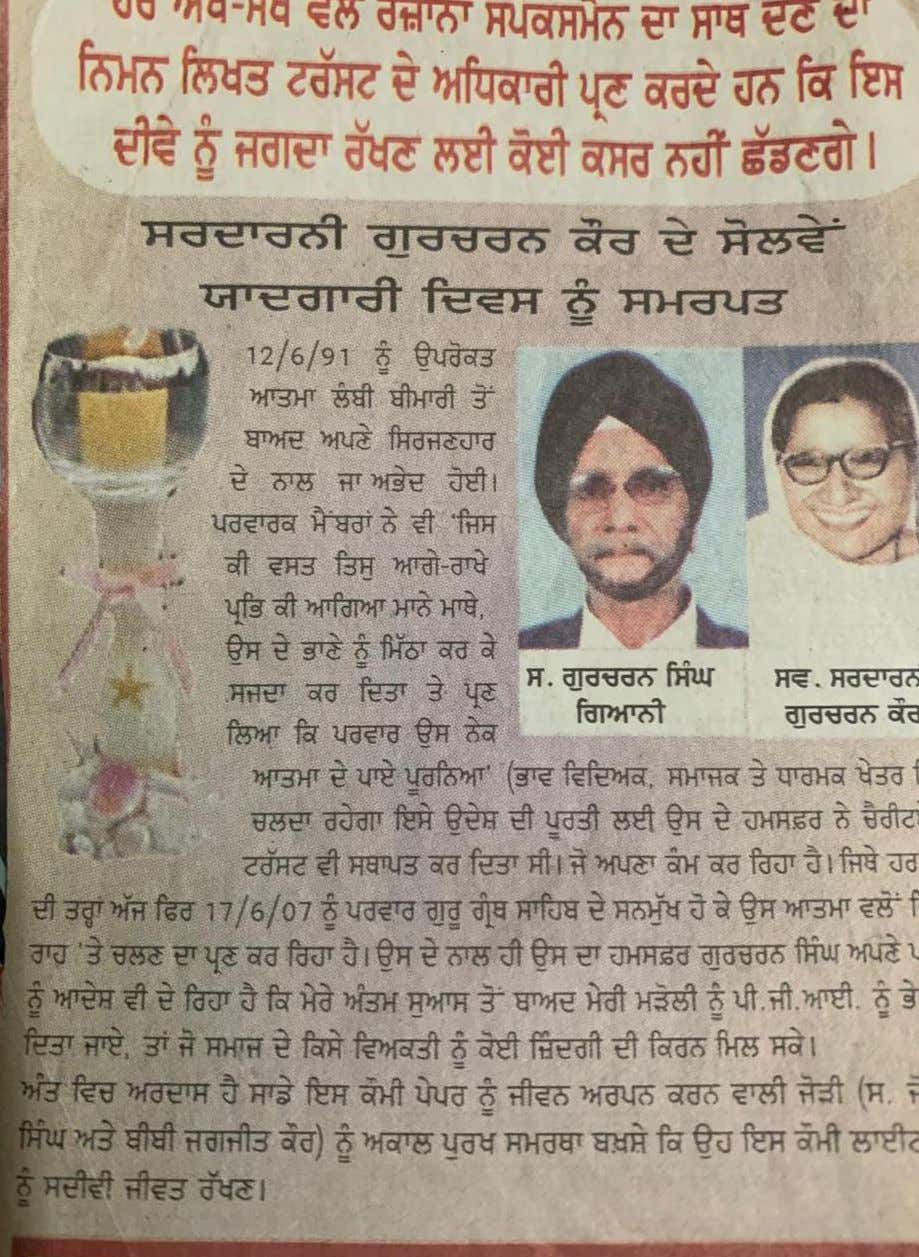 ਵੇਲੇ ਰੋਜ਼ਾਨਾ ਸਪੋਕਸਮੈਨ ਦਾ ਸਾਥ ਦੇਣ ਦਾ
ਨਿਮਨ ਲਿਖਤ ਟਰੱਸਟ ਦੇ ਅਧਿਕਾਰੀ ਪ੍ਰਣ ਕਰਦੇ ਹਨ ਕਿ ਇਸ
ਦੀਵੇ ਨੂੰ ਜਗਦਾ ਰੱਖਣ ਲਈ ਕੋਈ ਕਸਰ ਨਹੀਂ ਛੱਡਣਗੇ।
ਸਰਦਾਰਨੀ ਗੁਰਚਰਨ ਕੌਰ ਦੇ ਸੋਲਵੇਂ
ਯਾਦਗਾਰੀ ਦਿਵਸ ਨੂੰ ਸਮਰਪਤ
12/6/91 ਨੂੰ ਉਪਰੋਕਤ
ਆਤਮਾ ਲੰਬੀ ਬੀਮਾਰੀ ਤੋਂ
ਬਾਅਦ ਅਪਣੇ ਸਿਰਜਣਹਾਰ
ਦੇ ਨਾਲ ਜਾ ਅਭੇਦ ਹੋਈ।
ਪਰਵਾਰਕ ਮੈਂਬਰਾਂ ਨੇ ਵੀ 'ਜਿਸ
ਕੀ ਵਸਤ ਤਿਸੁ ਆਗੇ-ਰਾਖੇ
ਪ੍ਰਭਿ ਕੀ ਆਗਿਆ ਮਾਨੇ ਮਾਥੇ,
ਉਸ ਦੇ ਭਾਣੇ ਨੂੰ ਮਿੱਠਾ ਕਰ ਕੇ
ਸਜਦਾ ਕਰ ਦਿਤਾ ਤੇ ਪ੍ਰਣ
ਲਿਆ ਕਿ ਪਰਵਾਰ ਉਸ ਨੇਕ
ਆਤਮਾ ਦੇ ਪਾਏ ਪੂਰਨਿਆ' (ਭਾਵ ਵਿਦਿਅਕ, ਸਮਾਜਕ ਤੇ ਧਾਰਮਕ ਖੇਤਰ
ਚਲਦਾ ਰਹੇਗਾ ਇਸੇ ਉਦੇਸ਼ ਦੀ ਪੂਰਤੀ ਲਈ ਉਸ ਦੇ ਹਮਸਫ਼ਰ ਨੇ ਚੈਰੀਟ
ਟਰੱਸਟ ਵੀ ਸਥਾਪਤ ਕਰ ਦਿਤਾ ਸੀ। ਜੋ ਅਪਣਾ ਕੰਮ ਕਰ ਰਿਹਾ ਹੈ। ਜਿਥੇ ਹਰ
ਦੀ ਤਰ੍ਹਾਂ ਅੱਜ ਫਿਰ 17/6/07 ਨੂੰ ਪਰਵਾਰ ਗੁਰੂ ਗ੍ਰੰਥ ਸਾਹਿਬ ਦੇ ਸਨਮੁੱਖ ਹੋ ਕੇ ਉਸ ਆਤਮਾ ਵਲੋਂ
ਰਾਹ 'ਤੇ ਚਲਣ ਦਾ ਪ੍ਰਣ ਕਰ ਰਿਹਾ ਹੈ। ਉਸ ਦੇ ਨਾਲ ਹੀ ਉਸ ਦਾ ਹਮਸਫ਼ਰ ਗੁਰਚਰਨ ਸਿੰਘ ਅਪਣੇ
ਨੂੰ ਆਦੇਸ਼ ਵੀ ਦੇ ਰਿਹਾ ਹੈ ਕਿ ਮੇਰੇ ਅੰਤਮ ਸੁਆਸ ਤੋਂ ਬਾਅਦ ਮੇਰੀ ਮੜੋਲੀ ਨੂੰ ਪੀ.ਜੀ.ਆਈ. ਨੂੰ ਭੇ
ਦਿਤਾ ਜਾਏ, ਤਾਂ ਜੋ ਸਮਾਜ ਦੇ ਕਿਸੇ ਵਿਅਕਤੀ ਨੂੰ ਕੋਈ ਜ਼ਿੰਦਗੀ ਦੀ ਕਿਰਨ ਮਿਲ ਸਕੇ।
ਅੰਤ ਵਿਚ ਅਰਦਾਸ ਹੈ ਸਾਡੇ ਇਸ ਕੌਮੀ ਪੇਪਰ ਨੂੰ ਜੀਵਨ ਅਰਪਨ ਕਰਨ ਵਾਲੀ ਜੋੜੀ (ਸ. ਜੋ
ਸਿੰਘ ਅਤੇ ਬੀਬੀ ਜਗਜੀਤ ਕੌਰ) ਨੂੰ ਅਕਾਲ ਪੁਰਖ ਸਮਰਥਾ ਬਖ਼ਸ਼ੇ ਕਿ ਉਹ ਇਸ ਕੌਮੀ ਲਾਈਟ
ਨੂੰ ਸਦੀਵੀ ਜੀਵਤ ਰੱਖਣ।
ਸ. ਗੁਰਚਰਨ ਸਿੰਘ
ਗਿਆਨੀ
ਸਵ. ਸਰਦਾਰਨ
ਗੁਰਚਰਨ ਕੌਰ